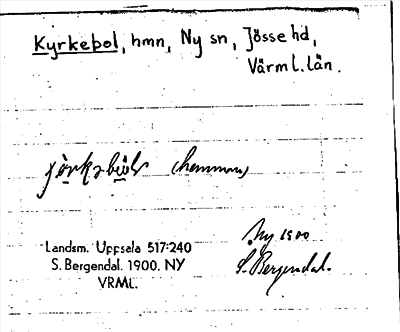 Kyrkebol, hmn, Ny sn, Jösse hd,
Värml. län.
(hemman)
Ny 1900
S. Bergendal.
Landsm. Uppsala 517:240
S. Bergendal. 1900. NY
VRML.